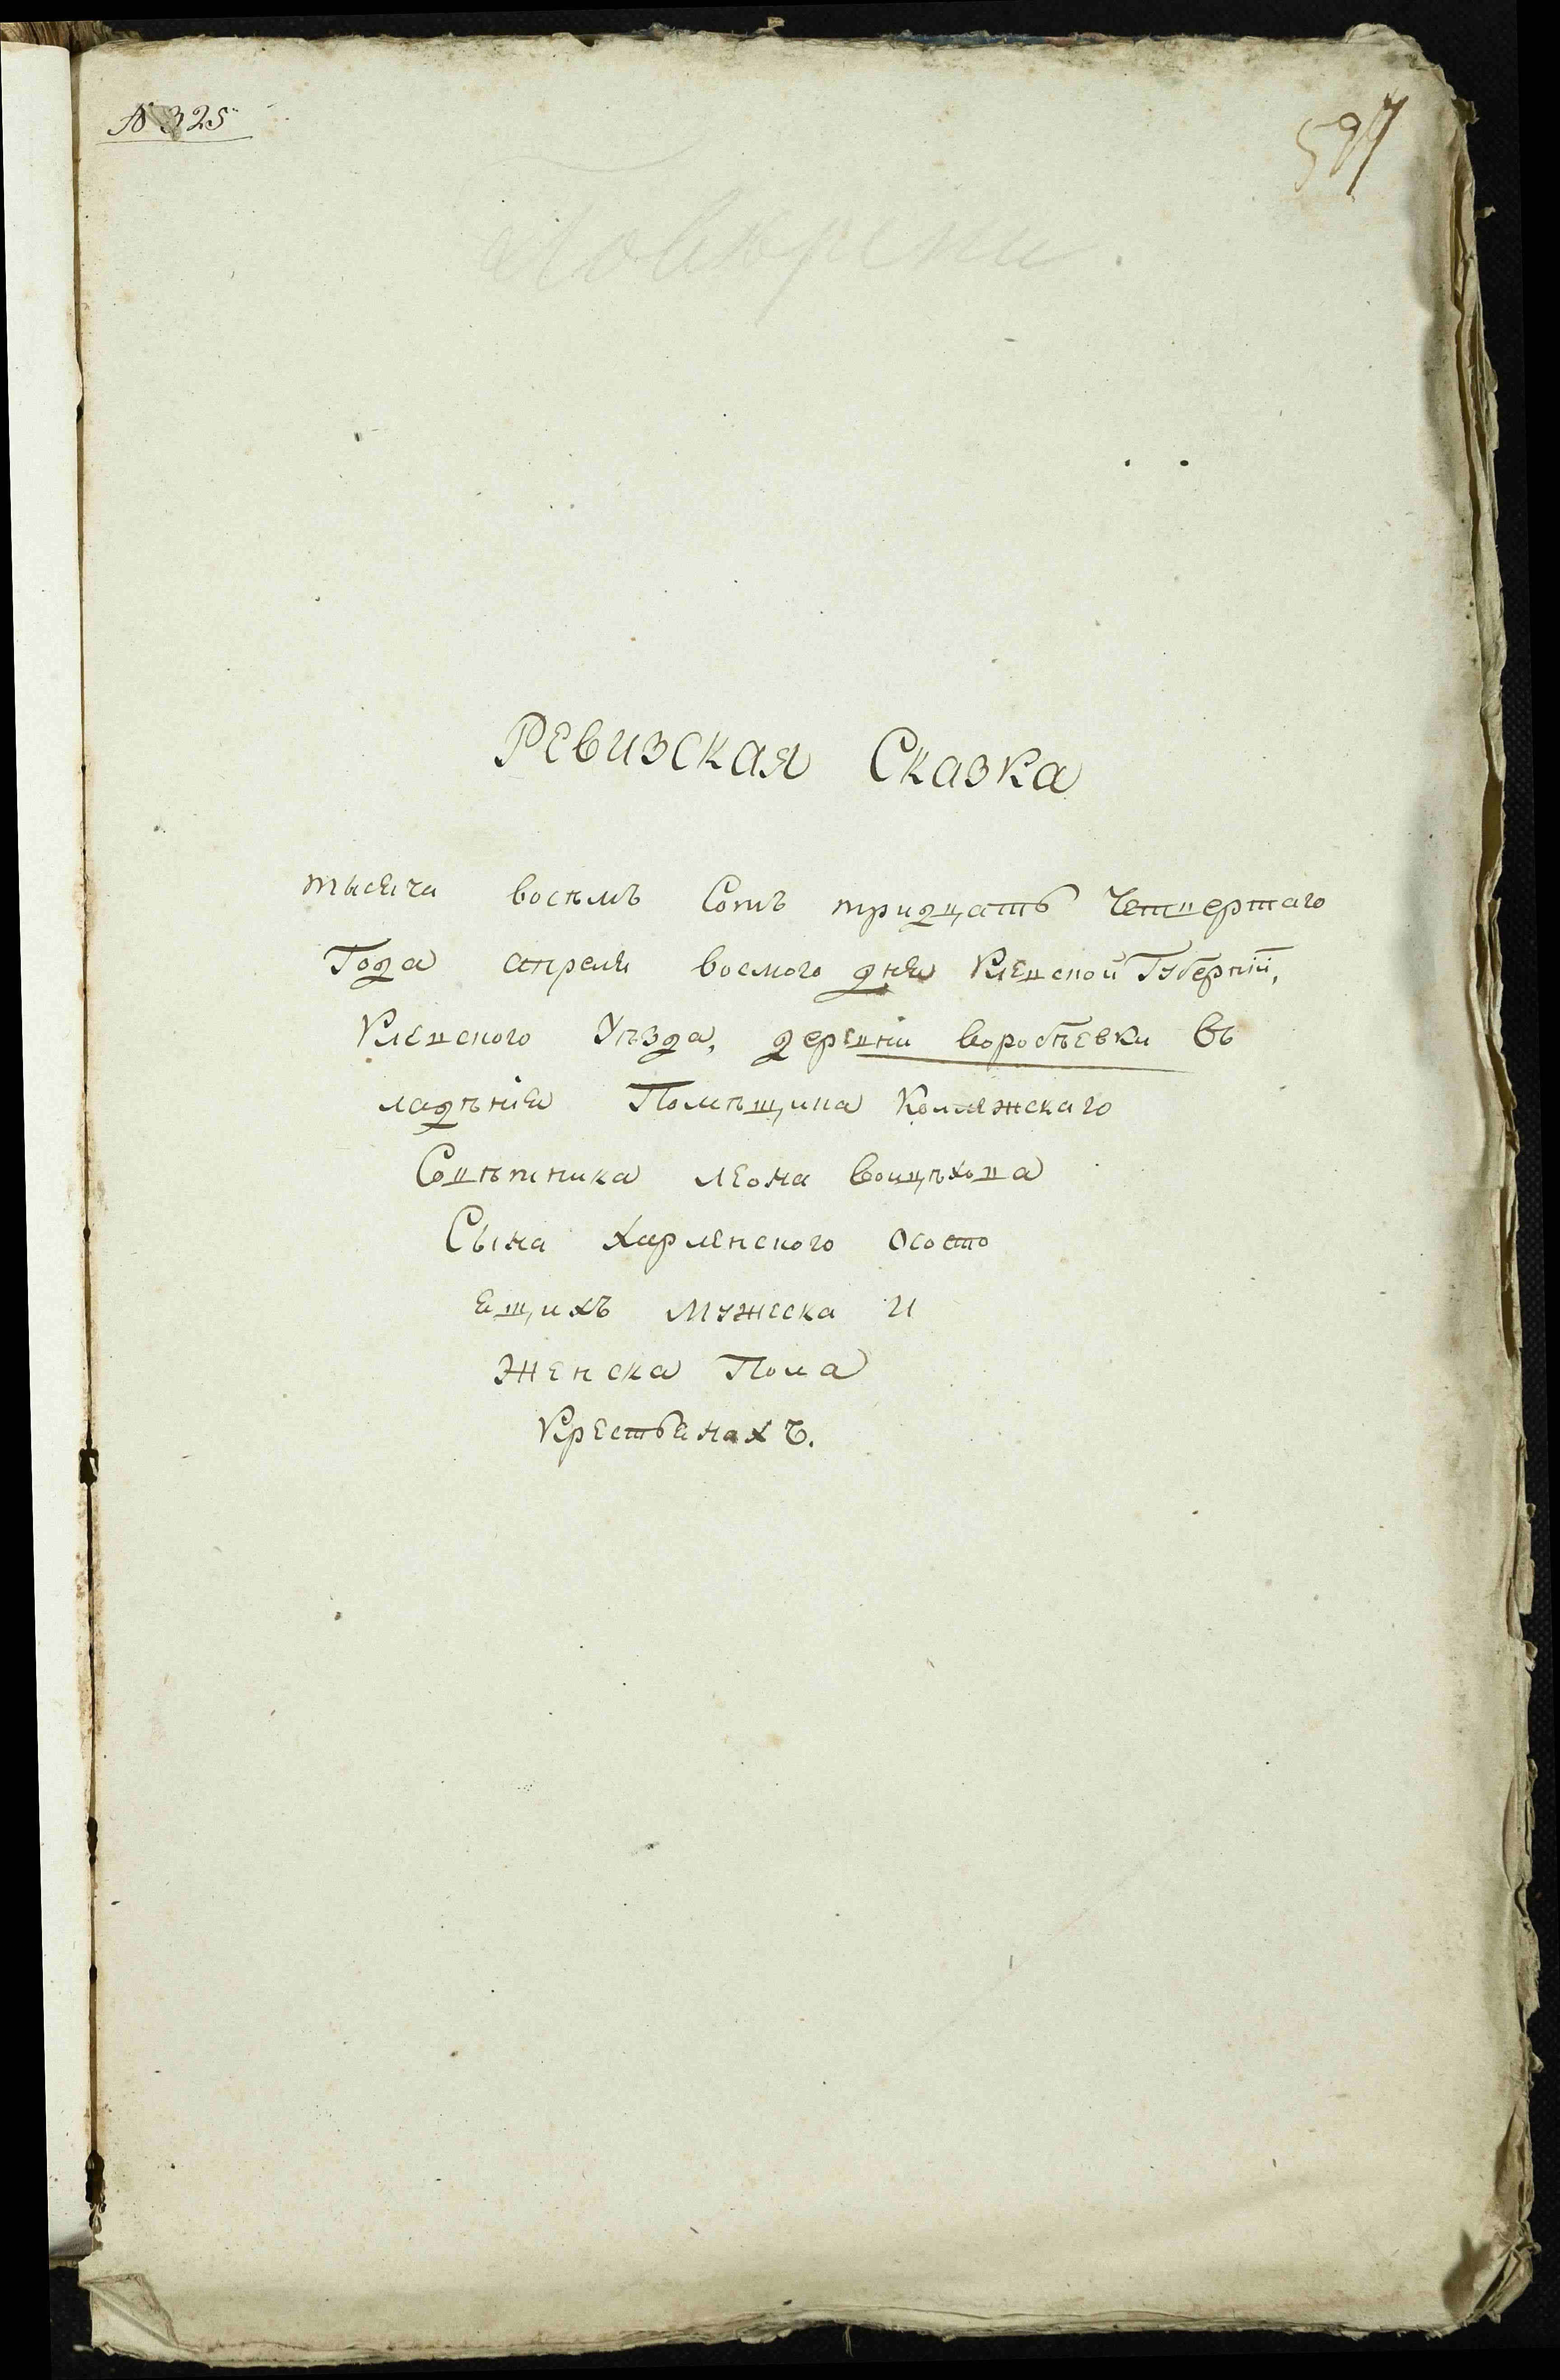 № 325
597
Повѣрени.
Ревизская Сказка
тысяча восѣмъ Сотъ тридцать Четвертаго
Года апреля восмого дня Кіевской Губерніи,
Кіевского Уѣзда, деревни воробѣевки въ
ладѣнія Помѣщика Колляжскаго
Совѣтника леона воицѣхова
Сына харленского осото
ящихъ мужеска и
женска Пола
Крестьянахъ.